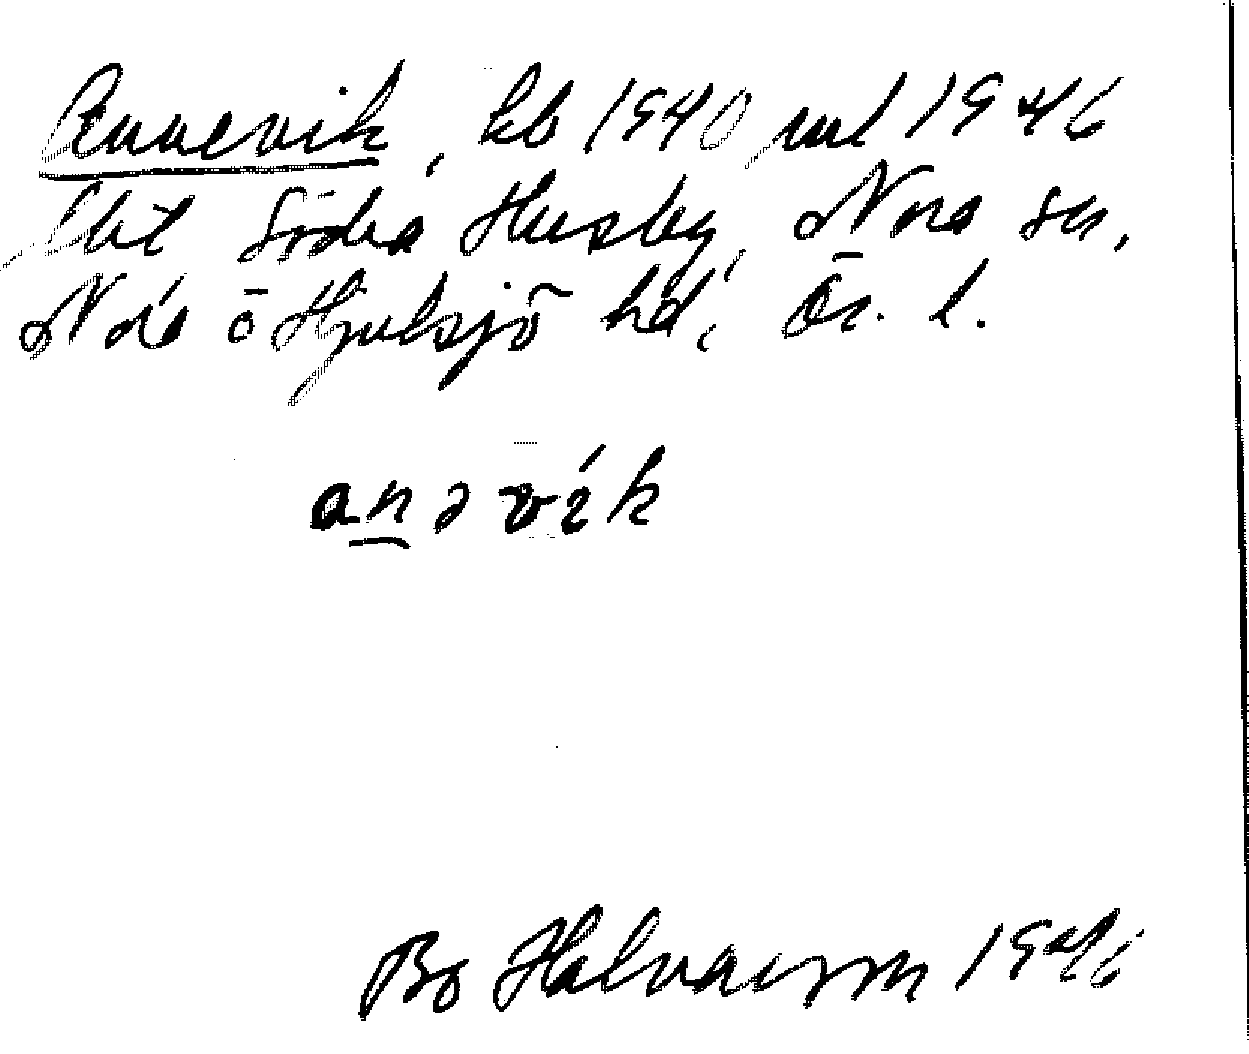 Annevik, kb 1940, ml 1946
lht Södra Husby, Nora sn,
Nora o Hjulsjö hd, Ör. l.
anəvík
Bo Halvarson 1946